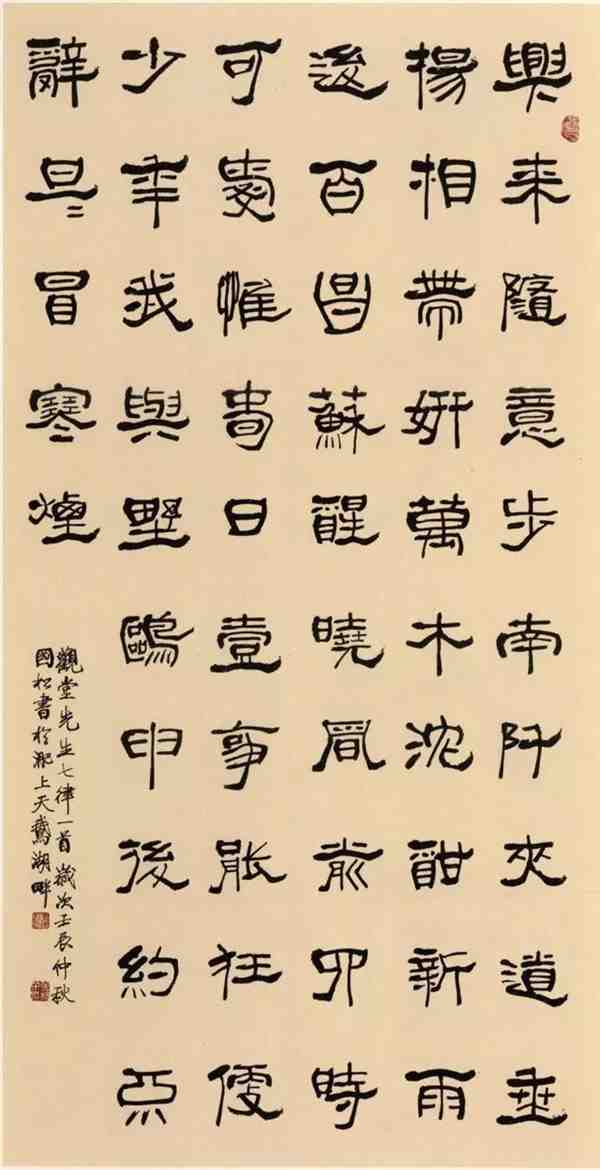 興来隨意步南阡夾道垂
揚相帶妍萬木沈酣新雨
後百昌蘇醒曉風前四時
可愛惟春日壹事能狂便
少年我與野鷗申後約不
辭旦〻冒寒煙
觀堂先生七律一首歲次壬辰仲秋
國松書於淝上天鵝湖畔